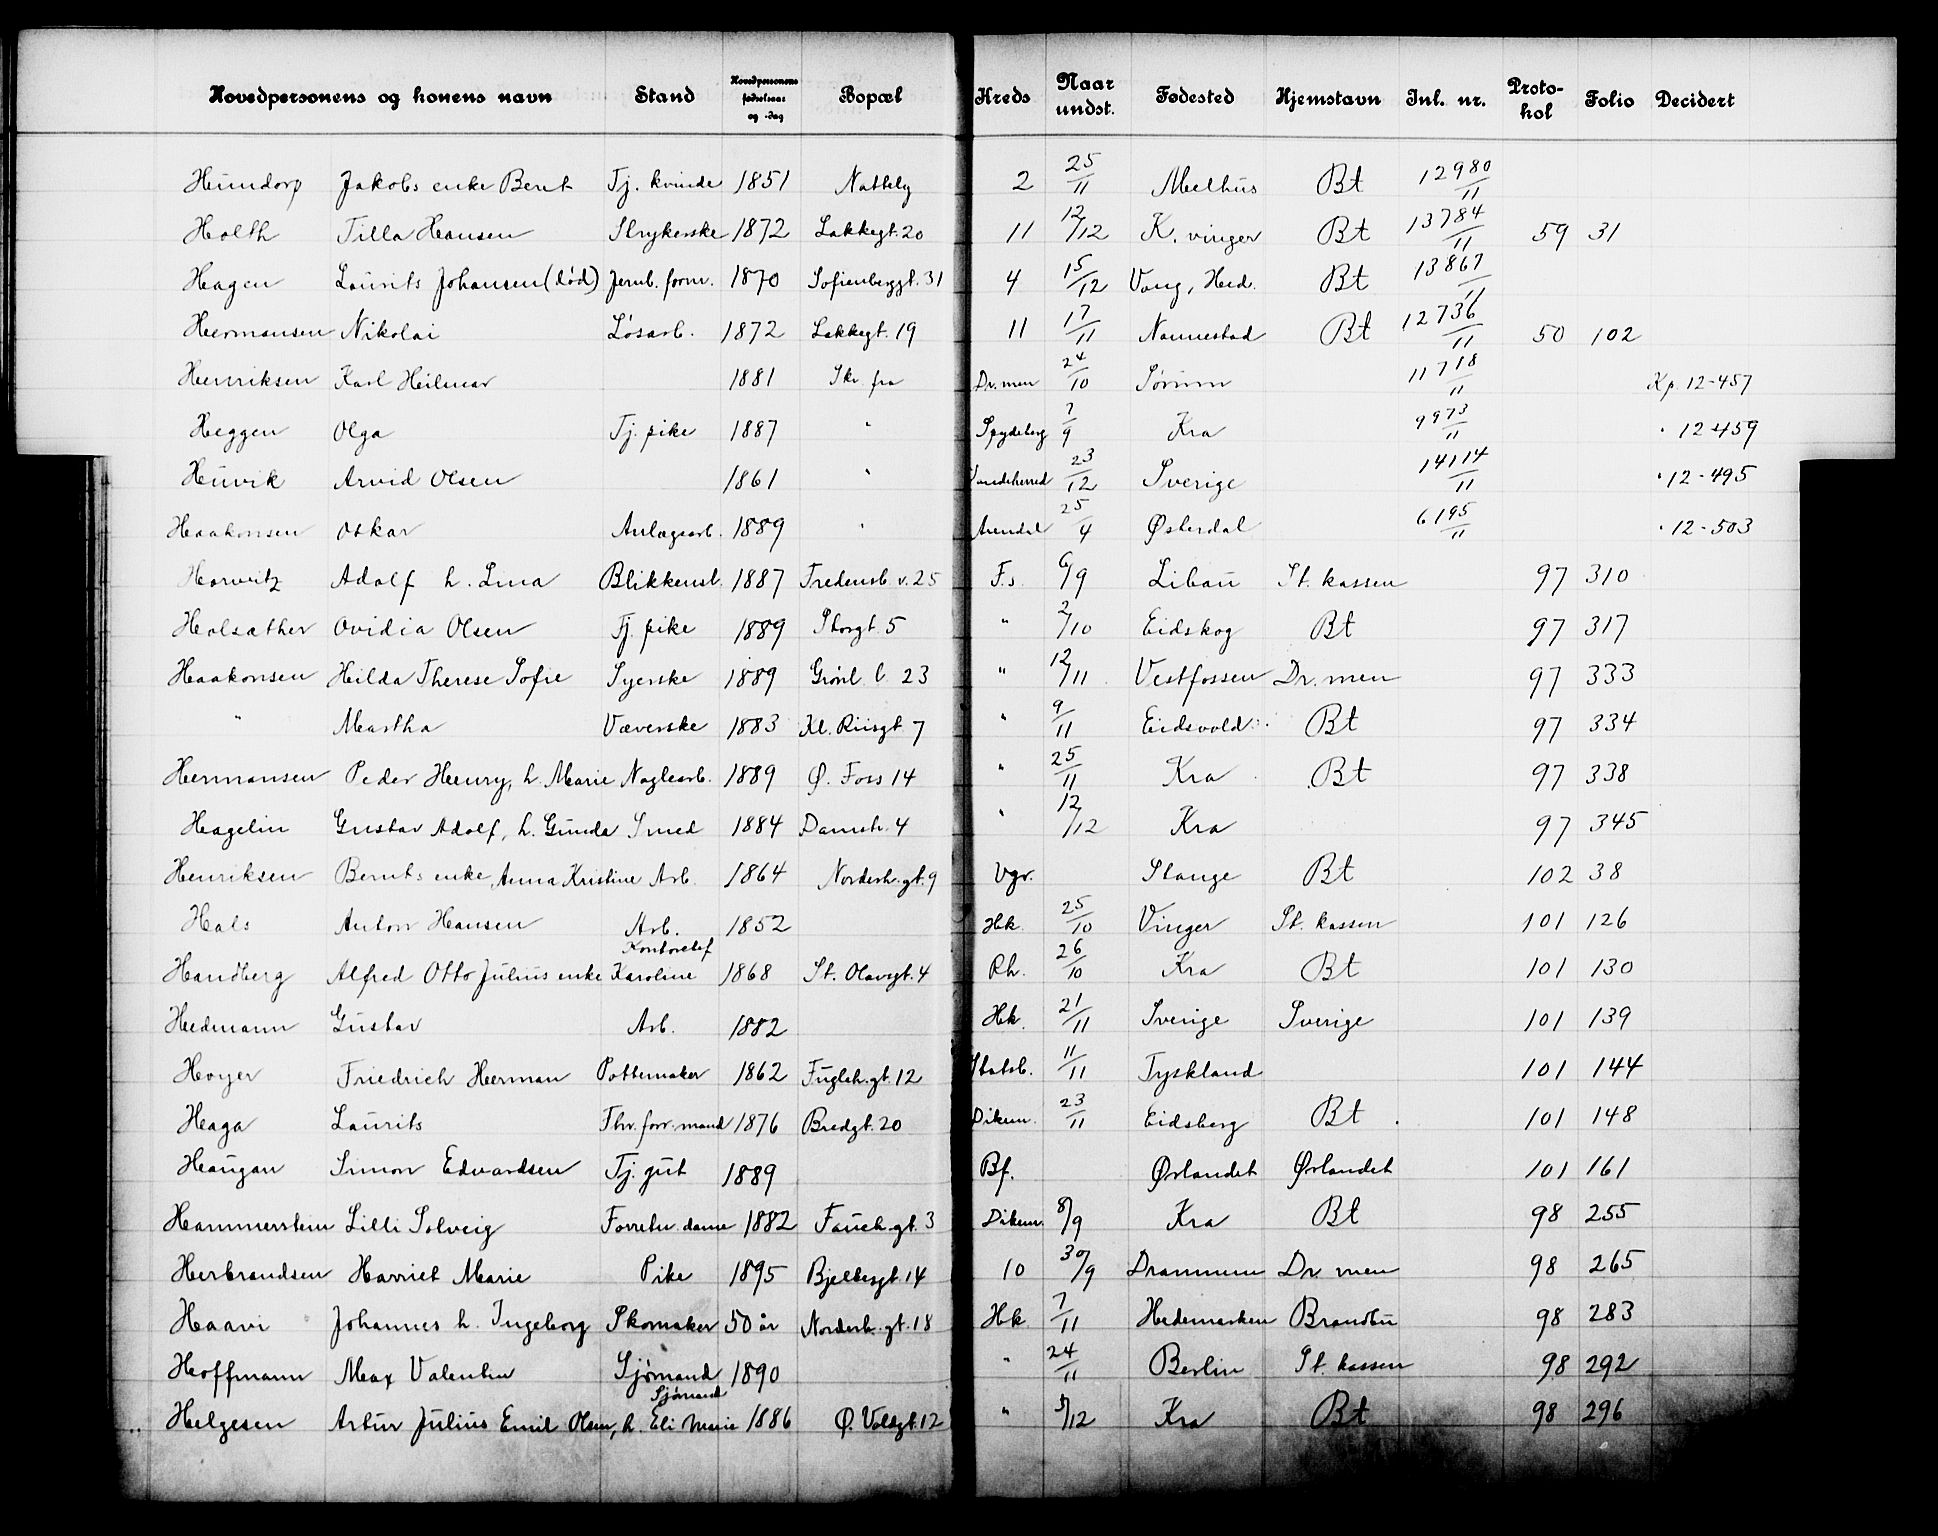 Hovedpersonens og konens navn Stand Hovedpersonens fødselsaar og -dag Bopæl Kreds Naar undst. Fødested Hjemstavn Inl. nr. Protokol Folio Decidert
Hundorp Jakobs enke Berit Tj. kvinde 1851 Nattely 2 25/11 Melhus Bt 12980/11
Holth Tilla Hansen Strykerske 1872 Lakkegt. 20 11 12/12 K. vinger Bt 13784/11 59 31
Hagen Laurits Johansen (død) Jernb. form. 1870 Sofienberggt. 31 4 15/12 Vang, Hed. Bt 13867/11
Hermansen Nikolai Løsarb. 1872 Lakkegt. 19 11 17/11 Nannestad Bt 12736/11 50 102
Henriksen Karl Heilmar 1881 Skr. fra Dr. men 24/10 Sørum 11718/11 Kp. 12-457
Heggen Olga Tj. pike 1887 " Spydeberg 7/9 Kra 9973/11 " 12-459
Huvik Arvid Olsen 1861 " Sandeherred 23/12 Sverige 14114/11 " 12-495
Haakonsen Oskar Anlægsarb. 1889 " Arendal 25/4 Østerdal 6195/11 " 12-503
Horwitz Adolf h. Lina Blikkensl. 1887 Fredensb. v. 25 F.s. 6/9 Libau St. kassen 97 310
Holsæther Ovidia Olsen Tj. pike 1889 Storgt. 5 " 2/10 Eidskog Bt 97 317
Haakonsen Hilda Therese Sofie Syerske 1889 Grønl. l. 23 " 12/11 Vestfossen Dr. men 97 333
" Martha Væverske 1883 Kl. Riisgt 7 " 9/11 Eidsvold Bt 97 334
Hermansen Peder Henry, h. Marie Naglearb. 1889 Ø. Foss 14 " 25/11 Kra Bt 97 338
Hagelin Gustav Adolf, h. Gunda Smed 1884 Damstr. 4 " 12/12 Kra 97 345
Henriksen Bernts enke, Anna Kristine Arb. 1864 Norderh. gt. 9 Vgr. Stange Bt 102 38
Hals Anton Hansen Arb. 1852 Hk. 25/10 Vinger St. kassen 101 126
Handberg Alfred Otto Julius enke Karoline Kontorchef 1868 St. Olavsgt. 4 Rh. 26/10 Kra Bt 101 130
Hedmann Gustav Arb. 1882 Hk. 21/11 Sverige Sverige 101 139
Hoyer Friedrich Herman Pottemaker 1862 Fugleh. gt. 12 Statsb. 11/11 Tyskland 101 144
Haga Laurits Thv. forr. mand 1876 Bredgt. 20 Dikem. 23/11 Eidsberg Bt 101 148
Haugan Simon Edvardsen Tj. gut 1889 Bf. Ørlandet Ørlandet 101 161
Hammerstein Lilli Solveig Forretn. dame 1882 Fauch. gt. 3 Dikem. 8/9 Kra Bt 98 255
Herbrandsen Harriet Marie Pike 1895 Bjelkesgt. 14 10 30/9 Drammen Dr. men 98 265
Haavi Johannes h. Ingeborg Skomaker 50 år Norderh. gt. 18 Hk. 7/11 Hedemarken Brandbu 98 283
Hoffmann Max Valentin Sjømand 1890 " 24/11 Berlin St. kassen 98 292
Helgesen Artur Julius Emil Olsen, h. Eli Marie Sjømand 1886 Ø. Voldgt. 12 " 5/12 Kra Bt 98 296